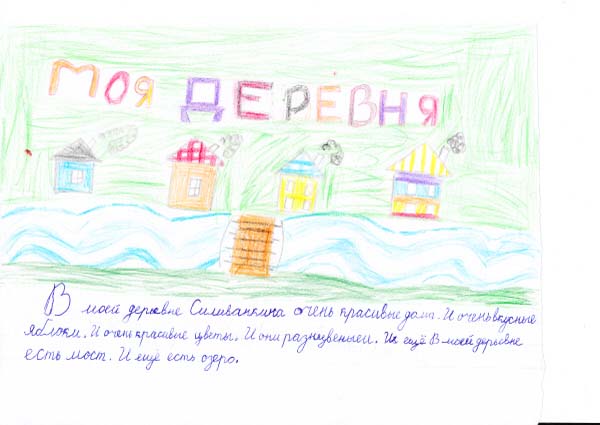 МОЯ ДЕРЕВНЯ
В моей деревне Силиванкина очень красивые дома. И очень вкусные
яблоки. И очень красивые цветы. И они разнцвеныеи. Их ещё В моей деревне
есть мост. И ещё есть озеро.